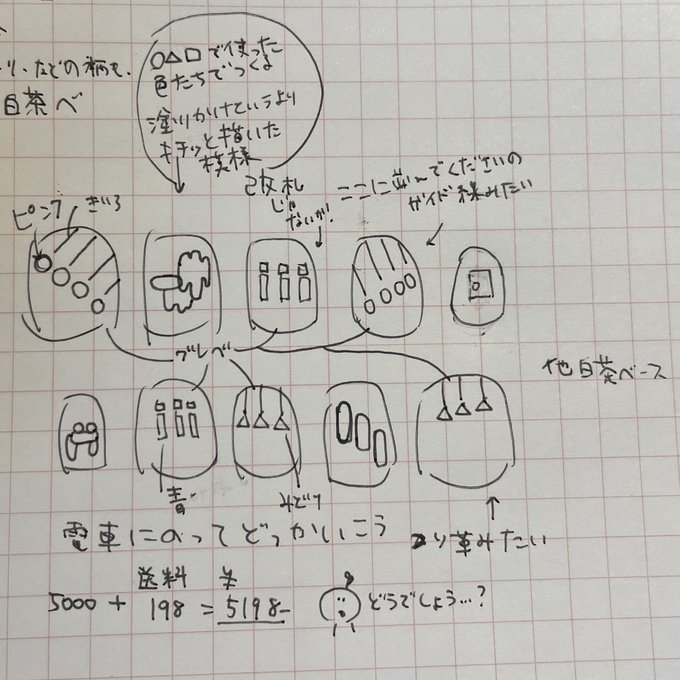 などの柄も、
白茶べ
○△□で使った
色たちでつくる
塗りかけというより
キチッと描いた
模様
改札
じゃ
ないが!
ここに並んでくださいの
ガイド線みたい
ピンク きいろ
グレベ
他白茶ベース
青
みどり
電車にのってどっかいこう
つり革みたい
送料 ¥
5000 + 198 = 5198-
どうでしょう…?